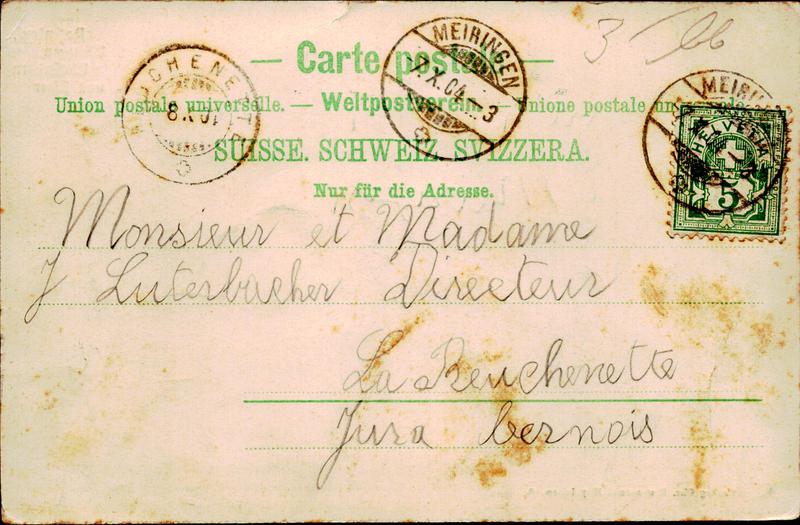 3/66
— Carte postale. —
MEIRINGEN
7.X.04. 3
REUCHENETTE
8 X 01
MEIRINGEN
Union postale universelle. — Weltpostverein. — Unione postale universale.
HELVETIA
5
SUISSE. SCHWEIZ. SVIZZERA.
Nur für die Adresse.
Monsieur et Madame
J Luterbacher Directeur
La Reuchenette
Jura bernois